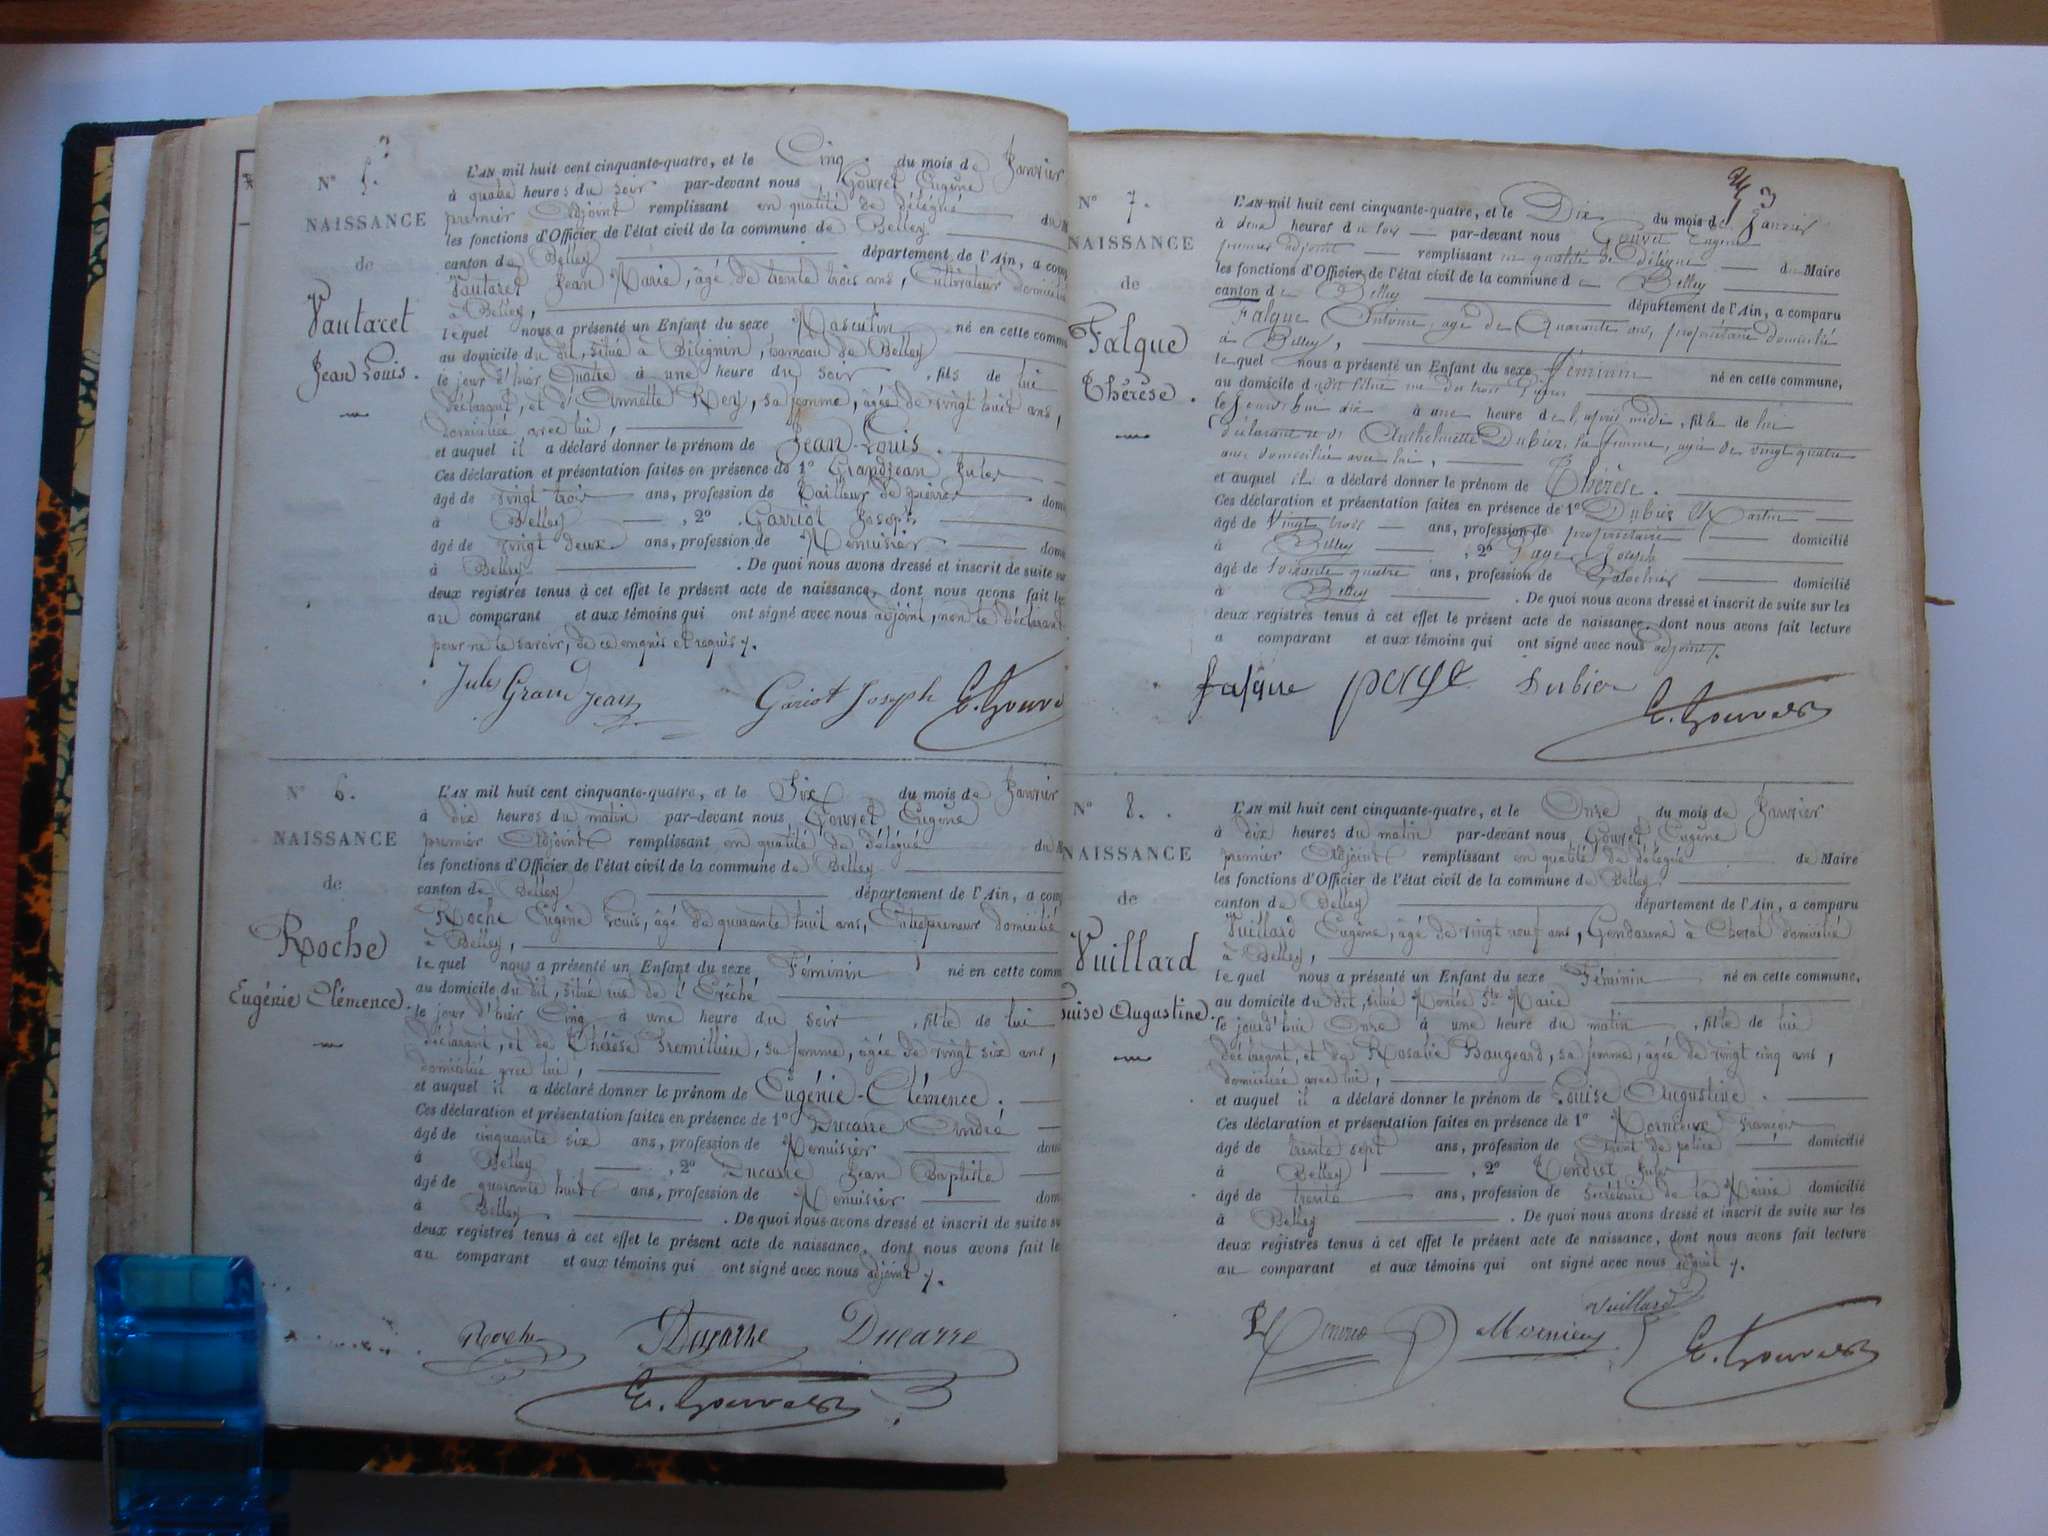 N° 5.
NAISSANCE
de
Vautaret
Jean Louis.
L'AN mil huit cent cinquante-quatre, et le Cinq. du mois de Janvier
à quatre heures du soir par-devant nous Gouvret Eugène
premier Adjoint remplissant en qualité de délégué du
les fonctions d'Officier de l'état civil de la commune de Belley
canton de Belley département de l'Ain, a comp
Vautaret Jean Marie, âgé de trente trois ans, Cultivateur domicilié
à Belley,
lequel nous a présenté un Enfant du sexe Masculin né en cette commu
au domicile du dit, situé à Billignin, hameau de Belley
le jour d'hier Quatre à une heure du soir, fils de lui
déclarant, et d'Annette Rey, sa femme, âgée de vingt huit ans,
domiciliée avec lui,
et auquel il a déclaré donner le prénom de Jean-Louis.
Ces déclaration et présentation faites en présence de 1° Grandjean Jules
âgé de vingt trois ans, profession de Tailleur de pierres dom
à Belley, 2° Garriot Joseph
âgé de vingt deux ans, profession de Menuisier dom
à Belley. De quoi nous avons dressé et inscrit de suite su
deux registres tenus à cet effet le présent acte de naissance, dont nous avons fait le
au comparant et aux témoins qui ont signé avec nous adjoint, non le déclarant
pour ne le savoir, de ce enquis et requis
Jules Grand Jean Gariot Joseph E. Gouvr
N° 6.
NAISSANCE
de
Roche
Eugénie Clémence.
L'AN mil huit cent cinquante-quatre, et le Six du mois de Janvier
à dix heures du matin par-devant nous Gouvret Eugène
premier Adjoint remplissant en qualité de délégué du
les fonctions d'Officier de l'état civil de la commune de Belley
canton de Belley département de l'Ain, a comp
Roche Eugène Louis, âgé de quarante huit ans, Entrepreneur domicilié
à Belley,
lequel nous a présenté un Enfant du sexe Féminin né en cette comm
au domicile du dit, situé rue de l'Evêché
le jour d'hier Cinq à une heure du soir, fille de lui
déclarant, et de Thérèse Tremillieu, sa femme, âgée de vingt six ans,
domiciliée avec lui,
et auquel il a déclaré donner le prénom de Eugénie-Clémence.
Ces déclaration et présentation faites en présence de 1° Ducarre André
âgé de cinquante six ans, profession de Menuisier dom
à Belley, 2° Ducarre Jean Baptiste
âgé de quarante huit ans, profession de Menuisier dom
à Belley. De quoi nous avons dressé et inscrit de suite su
deux registres tenus à cet effet le présent acte de naissance, dont nous avons fait le
au comparant et aux témoins qui ont signé avec nous adjoint
Roche Ducarre Ducarre
E. Gouvret
3
N° 7.
NAISSANCE
de
Falque
Thérèse.
L'AN mil huit cent cinquante-quatre, et le Dix du mois de Janvier
à deux heures du soir par-devant nous Gouvret Eugène
premier adjoint remplissant en qualité de délégué du Maire
les fonctions d'Officier de l'état civil de la commune de Belley
canton de Belley département de l'Ain, a comparu
Falque Antoine, âgé de Quarante ans, propriétaire domicilié
à Belley,
lequel nous a présenté un Enfant du sexe féminin né en cette commune,
au domicile du dit situé rue des trois
le jourd'hui dix à une heure de l'après midi, fille de lui
déclarant et de Anthelmette Dubier, sa femme, agée de vingt quatre
ans domiciliée avec lui,
et auquel il a déclaré donner le prénom de Thérèse.
Ces déclaration et présentation faites en présence de 1° Dubier Martin
âgé de Vingt trois ans, profession de propriétaire domicilié
à Belley, 2° Page Joseph
âgé de soixante quatre ans, profession de Galochier domicilié
à Belley. De quoi nous avons dressé et inscrit de suite sur les
deux registres tenus à cet effet le présent acte de naissance, dont nous avons fait lecture
a comparant et aux témoins qui ont signé avec nous adjoint.
falque page Dubier
E. Gouvret
N° 8.
NAISSANCE
de
Vuillard
ouise Augustine.
L'AN mil huit cent cinquante-quatre, et le Onze du mois de Janvier
à dix heures du matin par-devant nous Gouvret Eugène
premier Adjoint remplissant en qualité de délégué de Maire
les fonctions d'Officier de l'état civil de la commune de Belley
canton de Belley département de l'Ain, a comparu
Vuillard Eugène, âgé de vingt neuf ans, Gendarme à Cheval domicilié
à Belley,
lequel nous a présenté un Enfant du sexe Féminin né en cette commune,
au domicile du dit, situé Montée Ste Marie
le jourd'hui Onze à une heure du matin, fille de lui
déclarant, et de Rosalie Baugeard, sa femme, âgée de vingt cinq ans,
domiciliée avec lui,
et auquel il a déclaré donner le prénom de Louise Augustine.
Ces déclaration et présentation faites en présence de 1° François
âgé de trente sept ans, profession de Agent de police domicilié
à Belley, 2° Jules
âgé de trente ans, profession de Secrétaire de la Mairie domicilié
à Belley. De quoi nous avons dressé et inscrit de suite sur les
deux registres tenus à cet effet le présent acte de naissance, dont nous avons fait lecture
au comparant et aux témoins qui ont signé avec nous adjoint
Vuillard
E. Gouvret